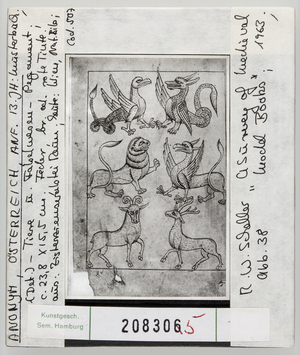 ANONYM, ÖSTERREICH, ANF. 13. JH: Musterbuch,
(Det.) - Tiere u. Fabelwesen - Pergament,
c. 23,8 x 15,5 cm
aus: Zisterzienserabtei Rein, heute: Wien, Nat. Bibl.
Cod. 507
R. W. Scheller "A Survey of Medieval
Model Books"
1963,
Abb. 38
Kunstgesch.
Sem. Hamburg
208306.5